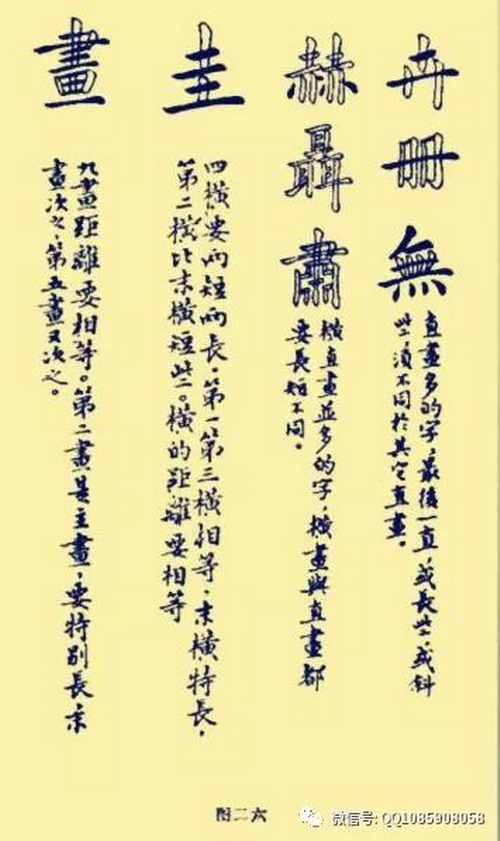 卉
冊
無
直畫多的字，最後一直，或長些，或斜
些，須不同於其它直畫。
赫
聶
肅
橫直畫並多的字，橫畫與直畫都
要長短不同。
圭
四橫要两短两長。第一第三橫相等，末橫特長，
第二橫比末橫短些。橫的距離要相等
畫
九畫距離要相等。第二畫是主畫，要特别長末
畫次之，第五畫又次之。
图二六
微信号: QQ1085908058